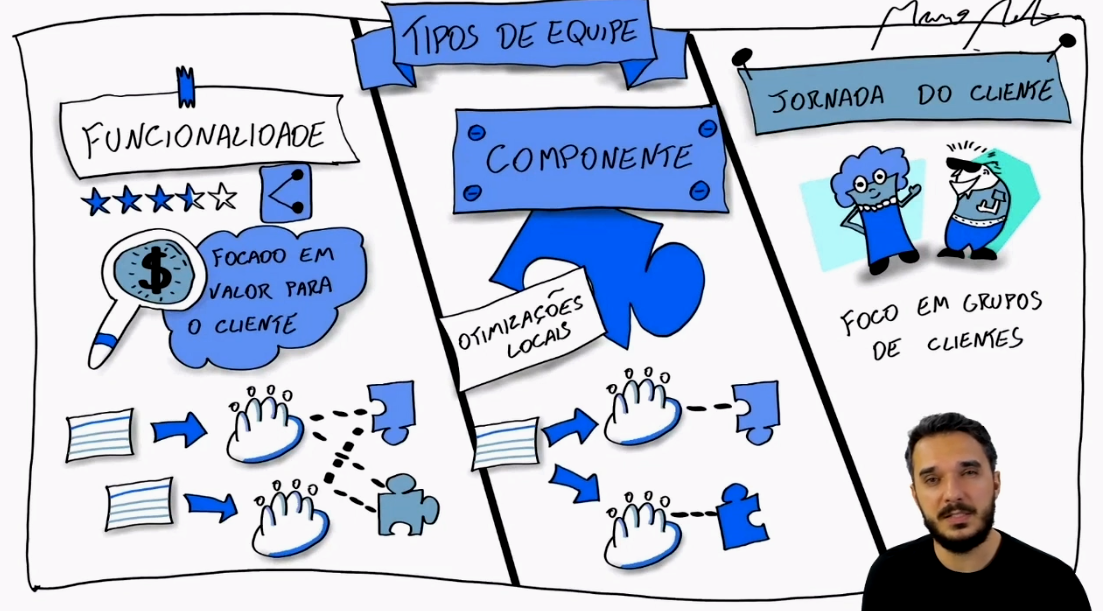 TIPOS DE EQUIPE
FUNCIONALIDADE
FOCADO EM
VALOR PARA
O CLIENTE
$
COMPONENTE
OTIMIZAÇÕES
LOCAIS
JORNADA DO CLIENTE
FOCO EM GRUPOS
DE CLIENTES